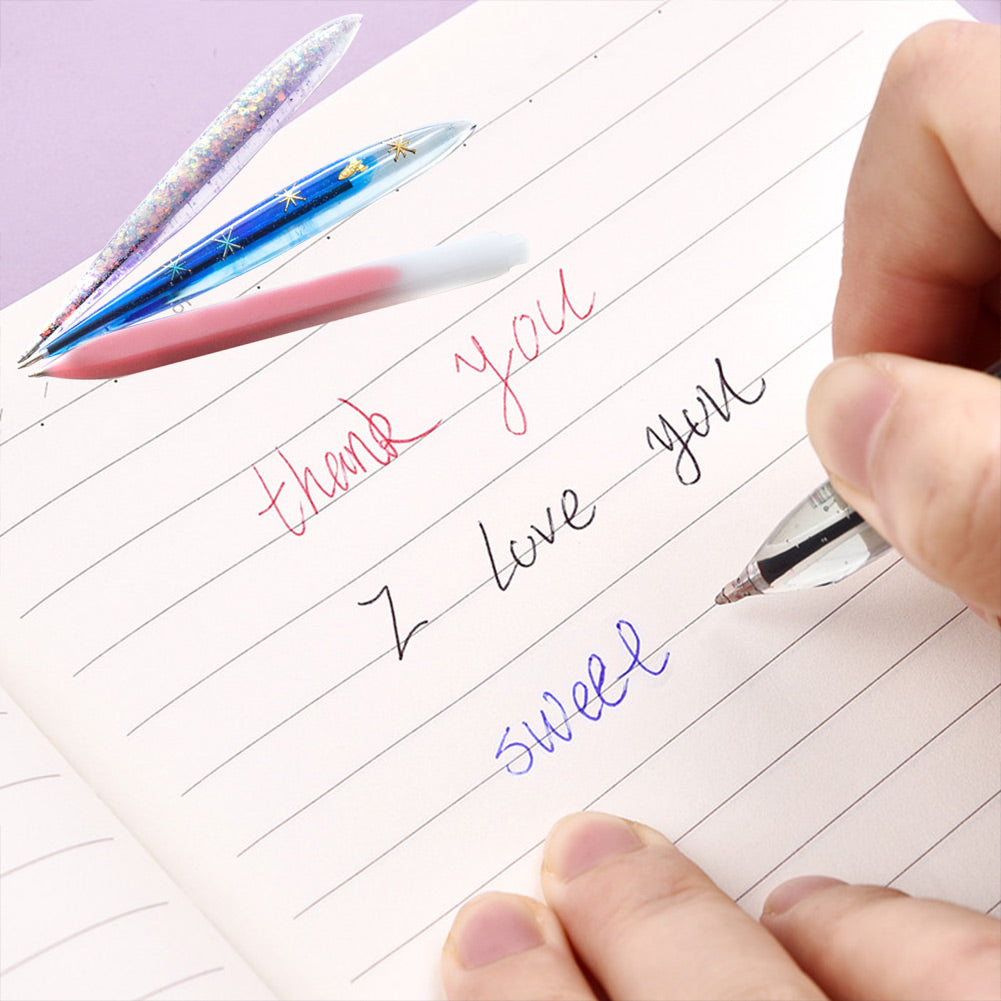 thank you
I love you
sweet